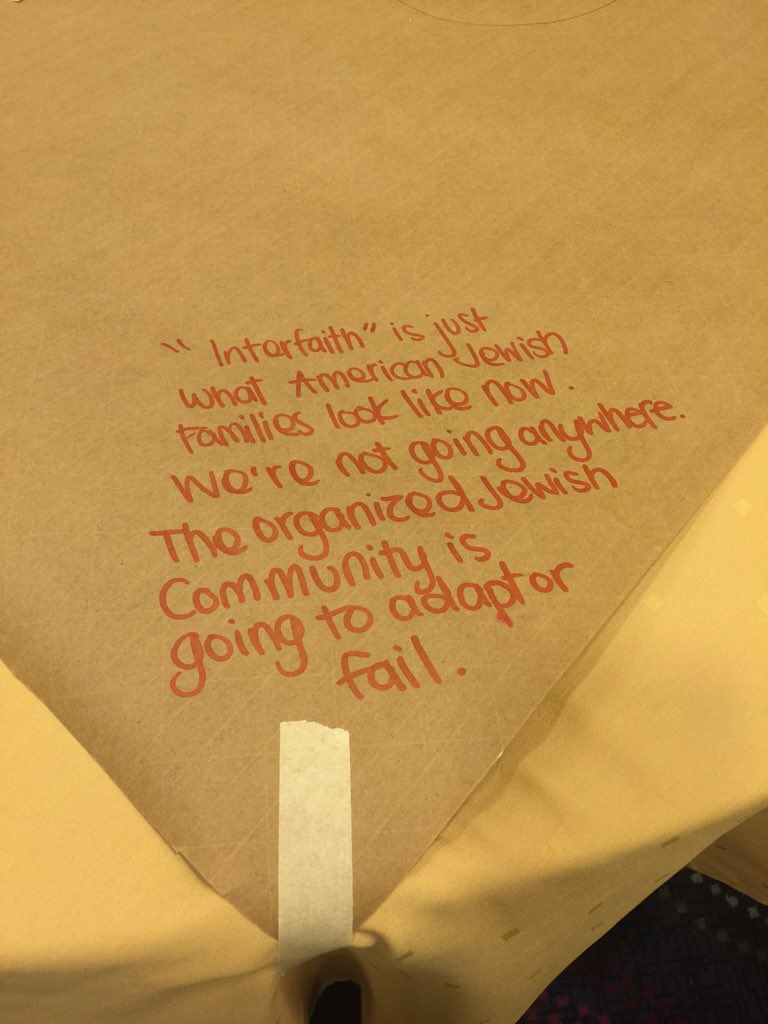 "Interfaith" is just
what American Jewish
Families look like now.
We're not going anywhere.
The organized Jewish
Community is
going to adapt or
fail.